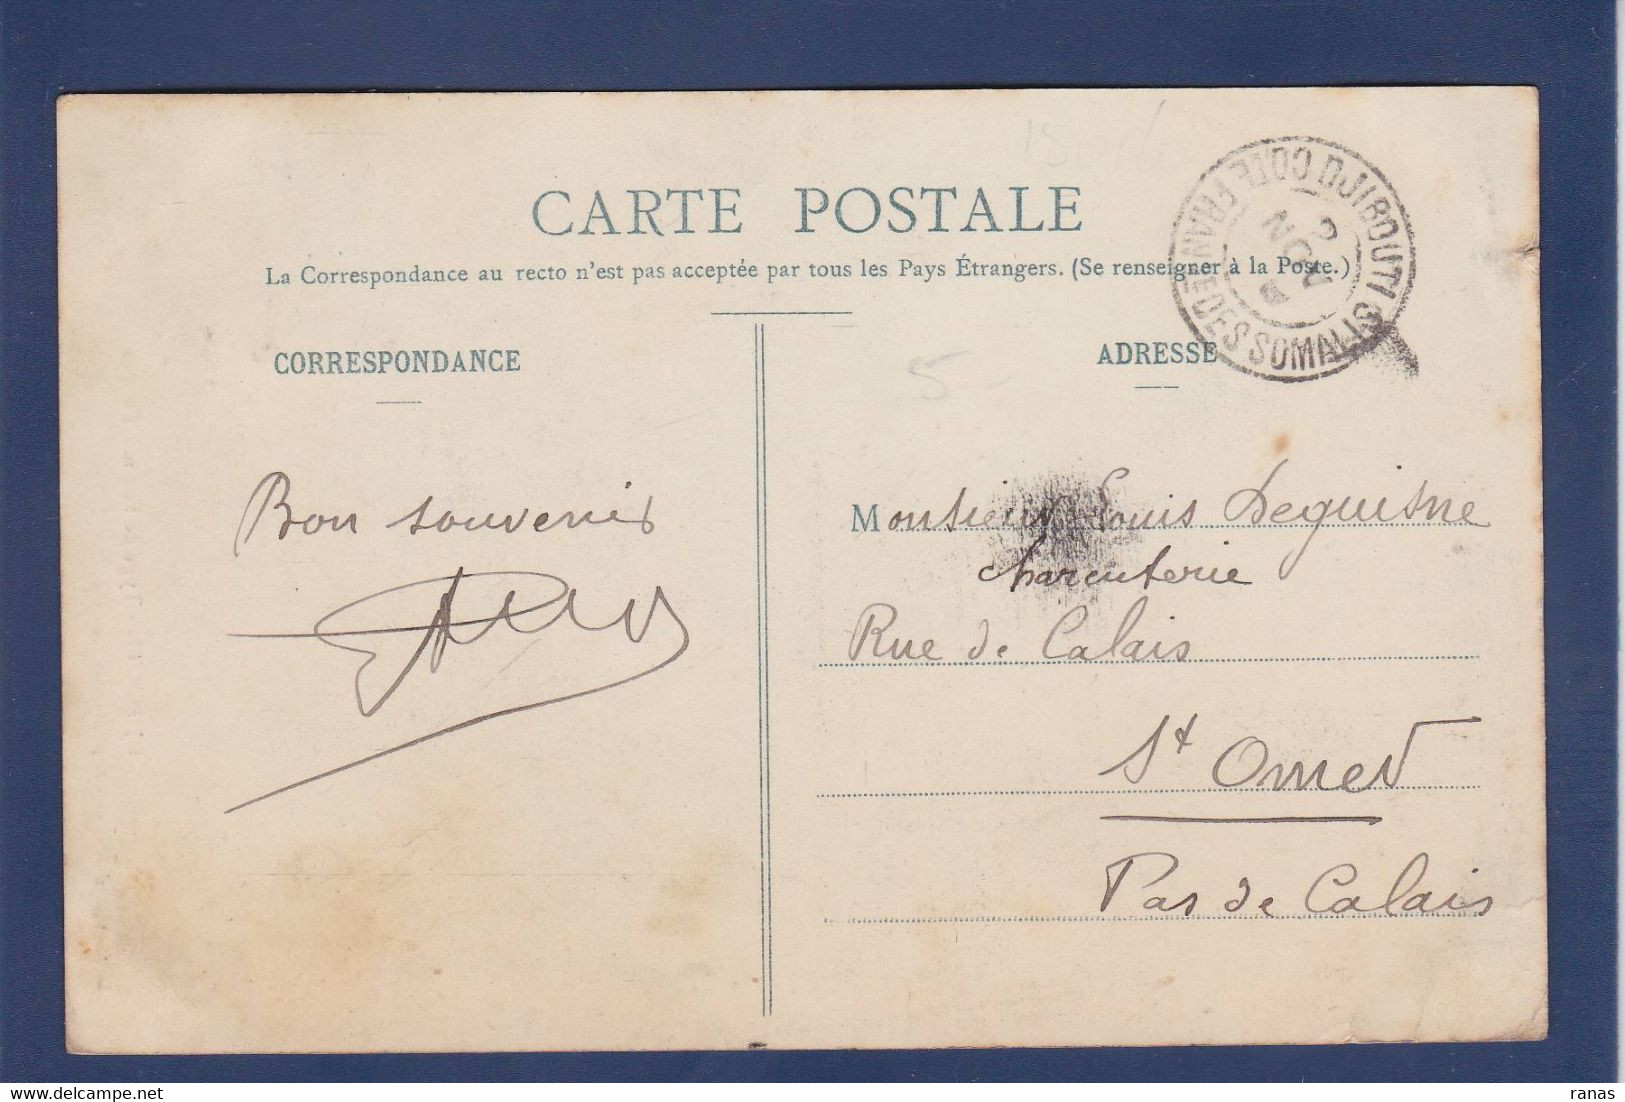 CARTE POSTALE
La Correspondance au recto n'est pas acceptée par tous les Pays Étrangers. (Se renseigner à la Poste.)
DJIBOUTI COTE FRANSE DES SOMALIS
NOV
CORRESPONDANCE
ADRESSE
5-
Bon souvenir
Monsieur Louis Deguisne
charcuterie
Rue de Calais
St Omer
Pas de Calais
www.delcampe.net
ranas